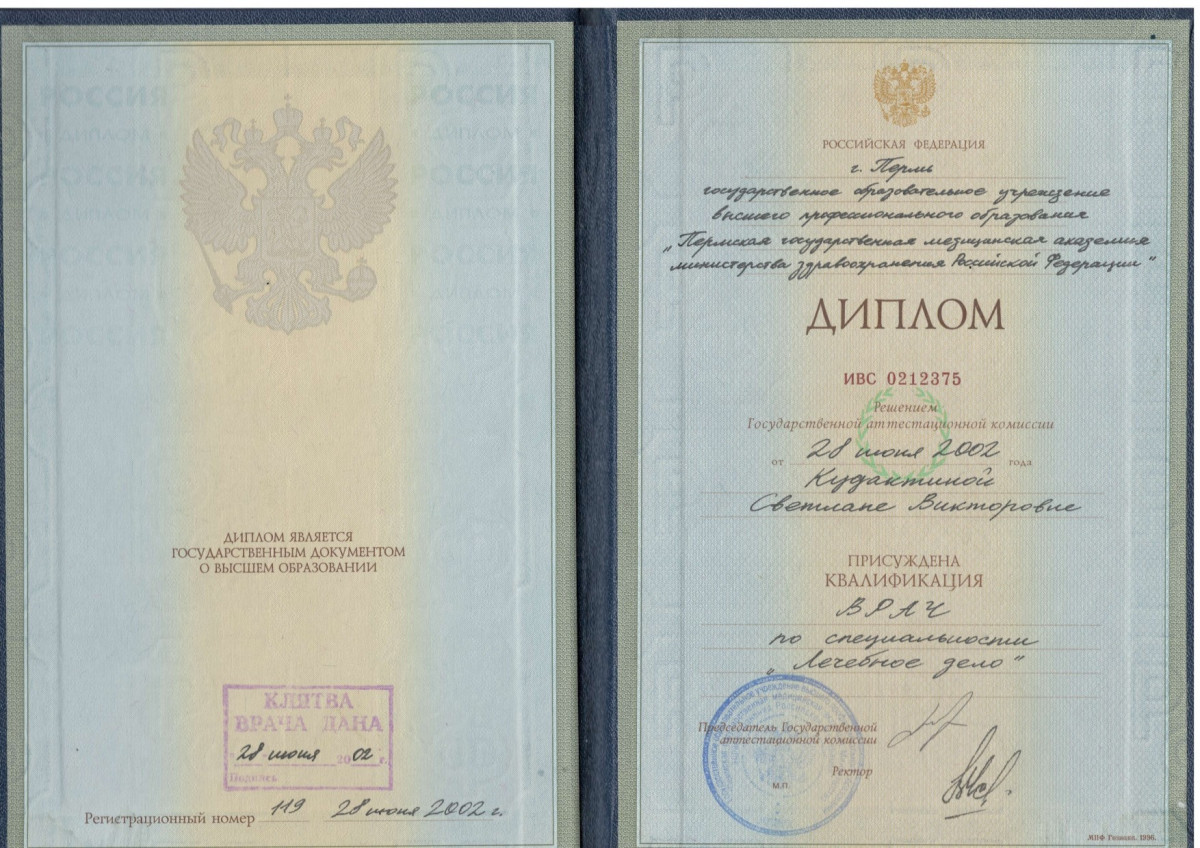 РОССИЯ РОССИЯ
ДИПЛОМ ДИПЛОМ
РОССИЯ РОССИЯ
ДИПЛОМ ДИПЛОМ
РОССИЯ РОССИЯ
ДИПЛОМ ДИПЛОМ
РОССИЯ РОССИЯ
ДИПЛОМ ЯВЛЯЕТСЯ
ГОСУДАРСТВЕННЫМ ДОКУМЕНТОМ
О ВЫСШЕМ ОБРАЗОВАНИИ
КЛЯТВА
ВРАЧА ДАНА
"28 июня 2002 г.
Подпись
Регистрационный номер 119 28 июня 2002 г.
РОССИЙСКАЯ ФЕДЕРАЦИЯ
г. Пермь
государственное образовательное учреждение
высшего профессионального образования
„Пермская государственная медицинская академия
министерства здравоохранения Российской Федерации"
ДИПЛОМ
ИВС 0212375
Решением
Государственной аттестационной комиссии
от 28 июня 2002 года
Кудактиной
Светлане Викторовне
ПРИСУЖДЕНА
КВАЛИФИКАЦИЯ
ВРАЧ
по специальности
„Лечебное дело"
Председатель Государственной
аттестационной комиссии
Ректор
М.П.
МПФ Гознака. 1996.